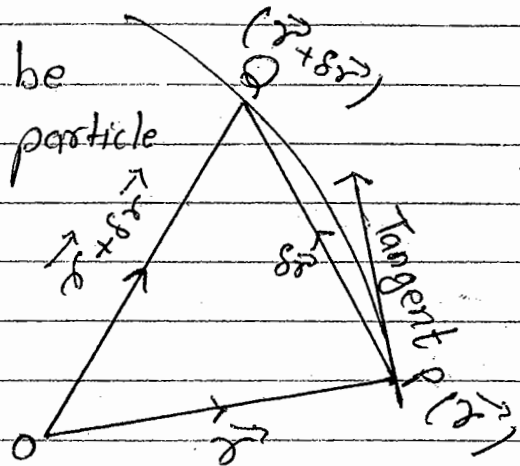 be
particle
Q
(r⃗+δr⃗)
r⃗+δr⃗
δr⃗
Tangent
P
(r⃗)
r⃗
O